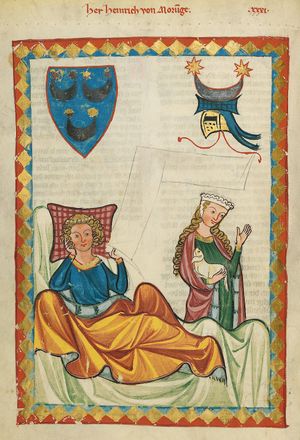 her heinrich von Morunge. .xxxi.